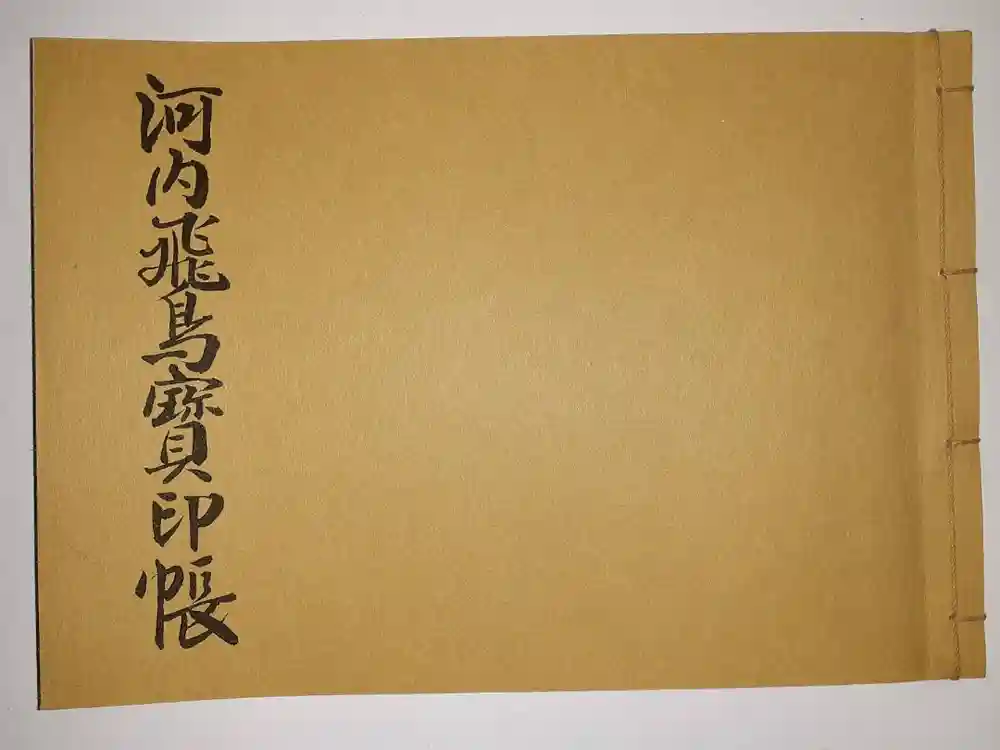 河内飛鳥寳印帳